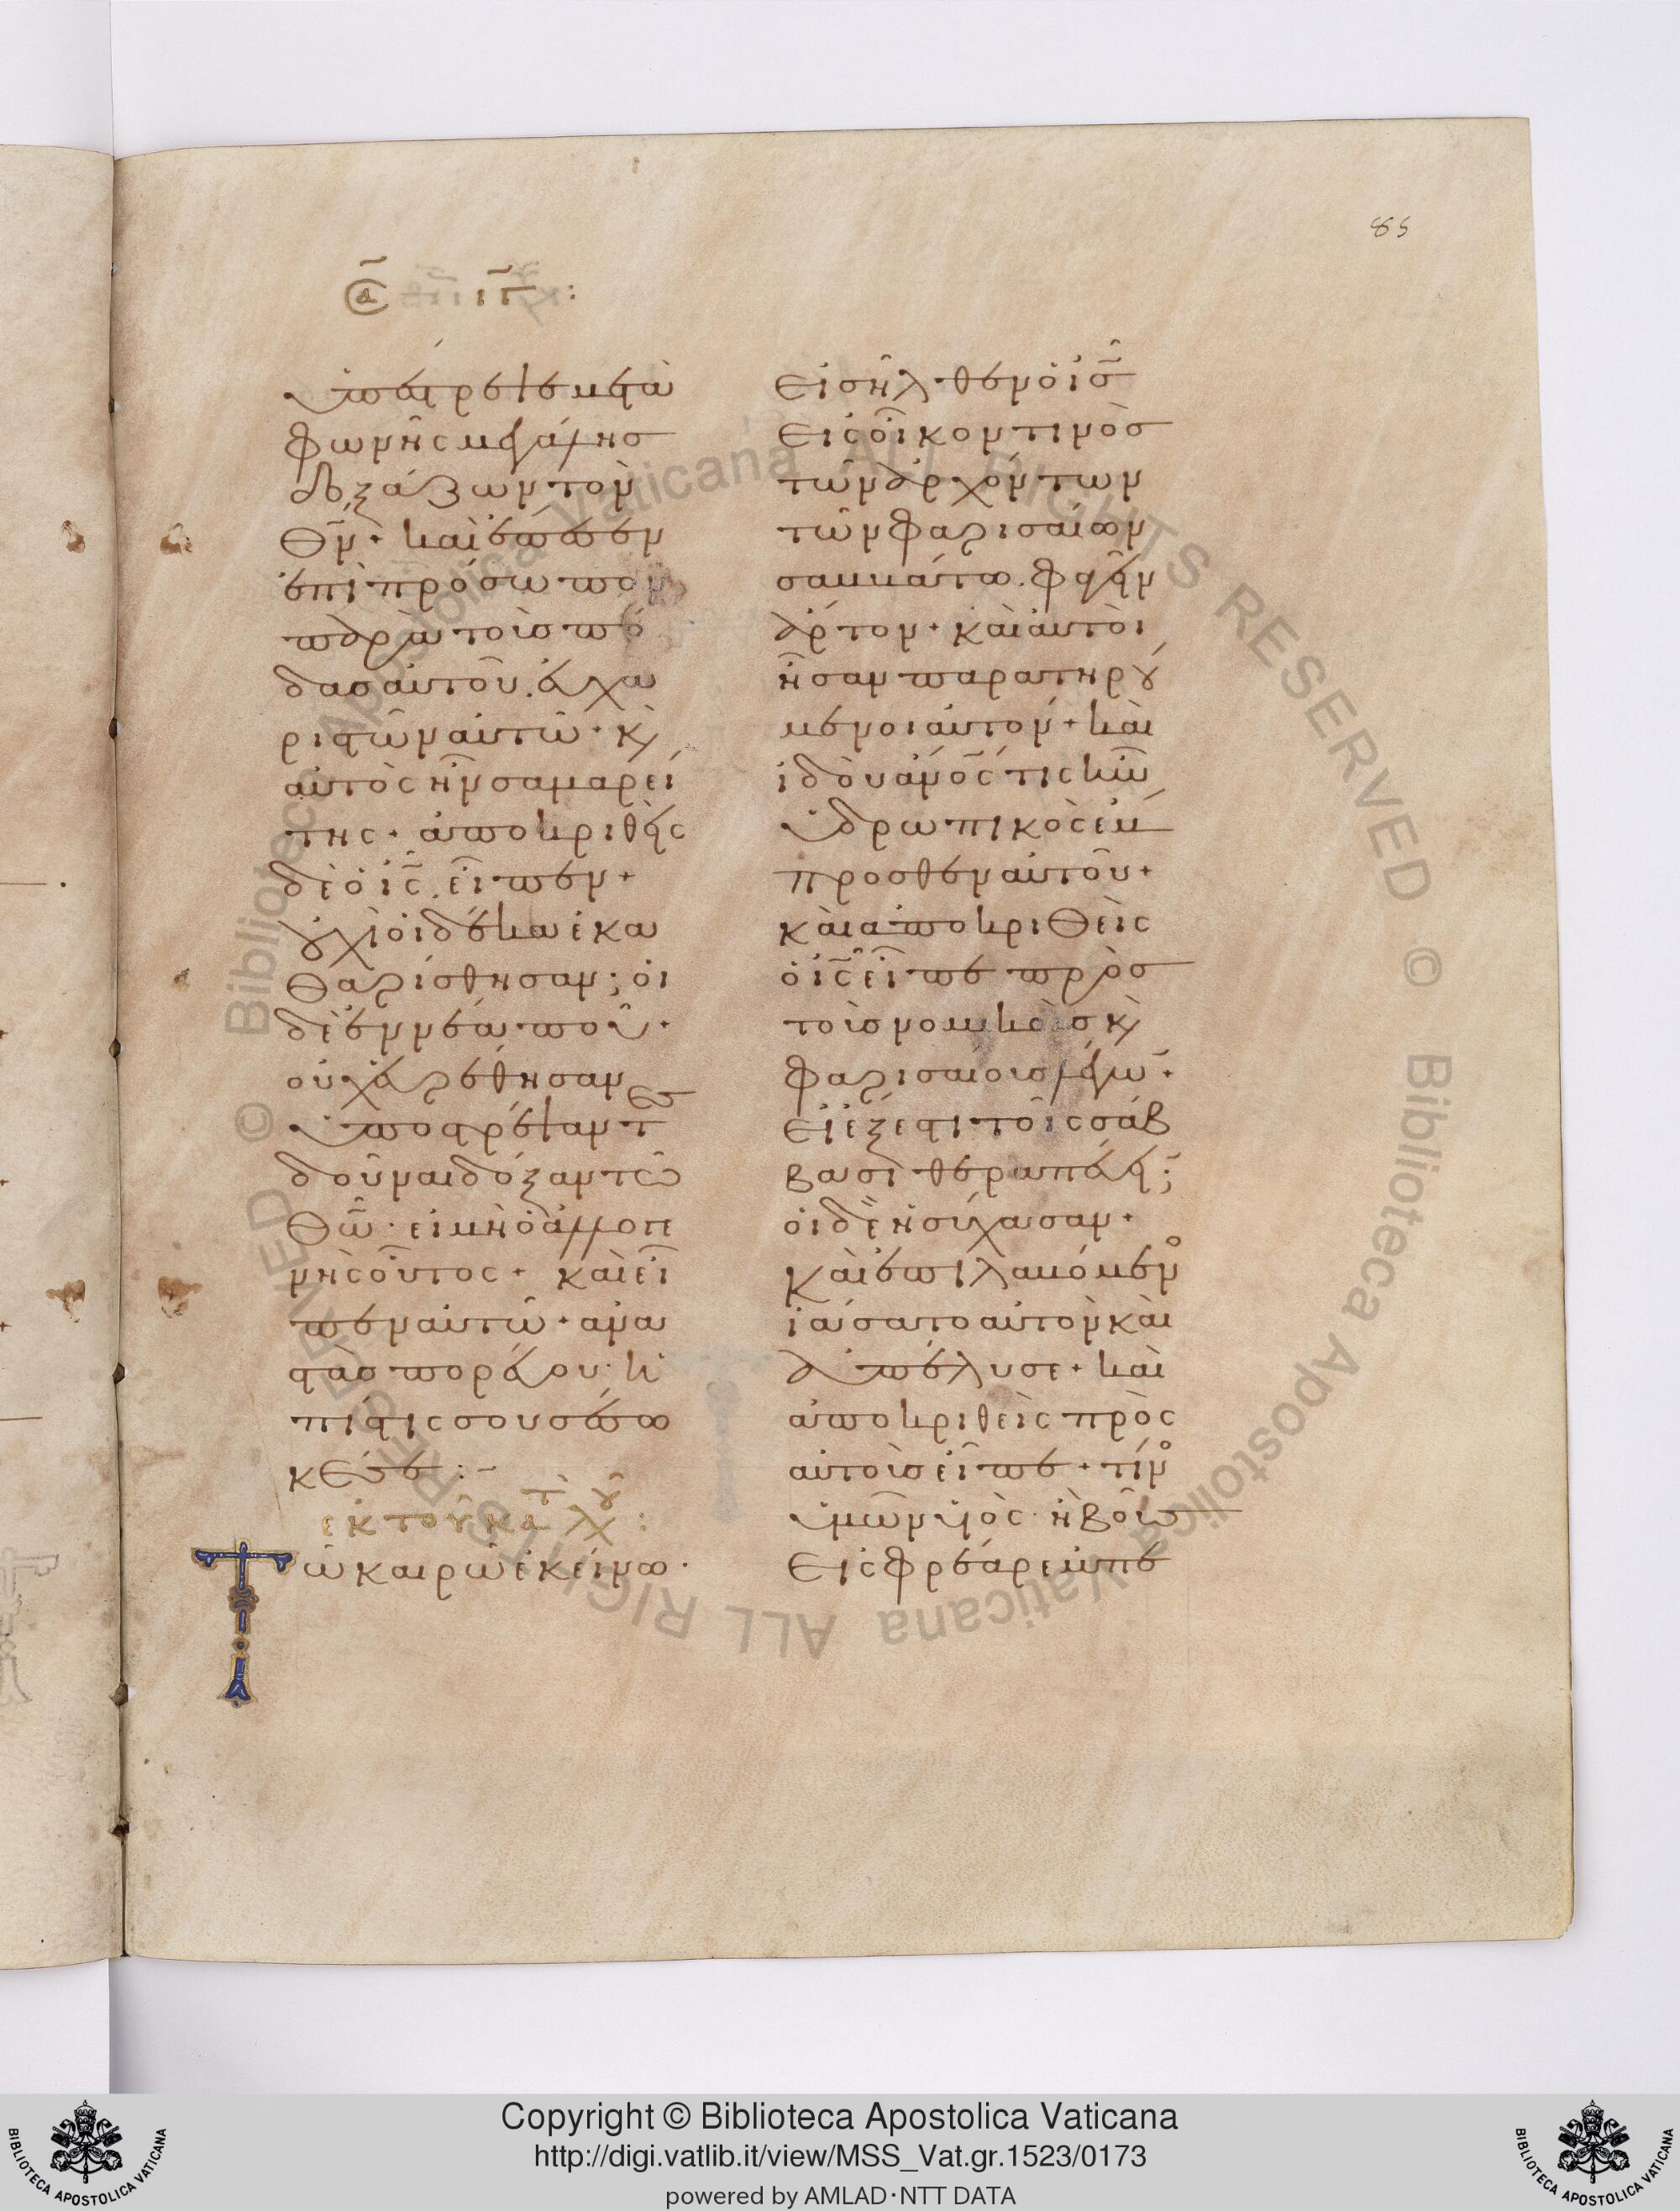 85
ὑπέστρεψε μετὰ
φωνῆς μεγάλης
δοξάζων τὸν
θν̄· καὶ ἔπεσεν
ἐπὶ πρόσωπον
παρὰ τοὺς πό
δας αὐτοῦ. εὐχα
ριστῶν αὐτῶ· κὶ
αὐτὸς ἦν σαμαρεί
της· ἀποκριθεὶς
δὲ ὁ ις̄. εἶπεν·
οὐχὶ οἱ δέκα ἐκα
θαρίσθησαν; οἱ
δὲ ἐννέα ποῦ·
οὐχ εὑρέθησαν
ὑποστρέψαντες
δοῦναι δόξαν τῶ
θῶ· εἰ μὴ ὁ ἀλλογε
νὴς οὗτος· καὶ εἶ
πεν αὐτῶ· ἀνα
στὰς πορεύου· ἡ
πίστις σου σέσω
κέ σε :-
ἐκ τοῦ κατὰ λου :
Τῶ καιρῶ ἐκείνω·
εἰσῆλθεν ὁ ις̄
εἰς οἶκον τινὸς
τῶν ἀρχόντων
τῶν φαρισαίων
σαββάτω. φαγεῖν
ἄρτον· καὶ αὐτοὶ
ἦσαν παρατηρού
μενοι αὐτόν· καὶ
ἰδοὺ ἀνο̄ς τις ἦν
ὑδρωπικὸς ἔμ
προσθεν αὐτοῦ·
καὶ ἀποκριθεὶς
ὁ ις̄ εἶπε πρὸς
τοὺς νομικοὺς κὶ
φαρισαίους λέγων·
εἰ ἔξεστι τοῖς σάβ
βασι θεραπεύειν;
οἱ δὲ ἡσύχασαν·
καὶ ἐπιλαβόμενος
ἰάσατο αὐτὸν καὶ
ἀπέλυσε· καὶ
ἀποκριθεὶς πρὸς
αὐτοὺς εἶπε· τίνος
ὑμῶν υἱὸς ἢ βοῦς
εἰς φρέαρ ἐμπε
Copyright © Biblioteca Apostolica Vaticana
http://digi.vatlib.it/view/MSS_Vat.gr.1523/0173
powered by AMLAD·NTT DATA